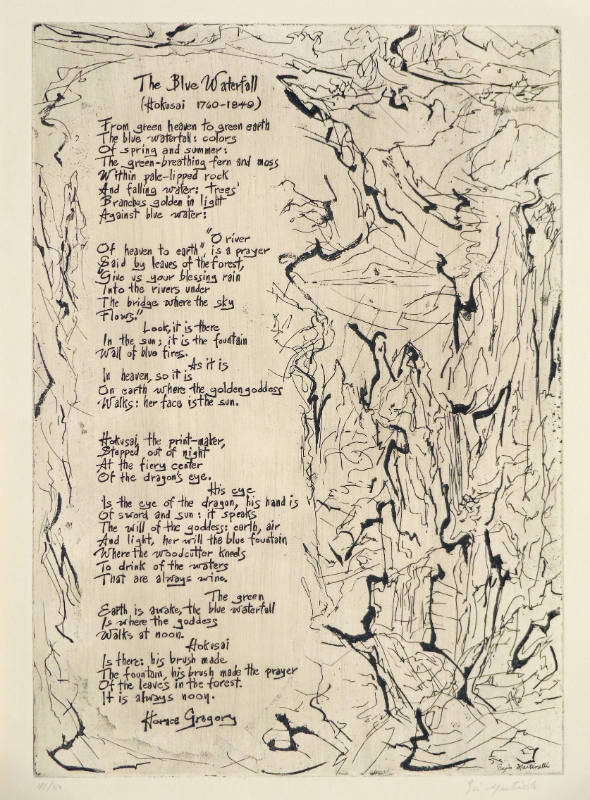 The Blue Waterfall
(Hokusai 1760-1849)
From green heaven to green earth
The blue waterfall: colors
Of spring and summer:
The green-breathing fern and moss
Within pale-lipped rock
And falling water: trees'
Branches golden in light
Against blue water:
"O river
Of heaven to earth" is a prayer
Said by leaves of the forest,
"Give us your blessing rain
Into the rivers under
The bridge where the sky
Flows."
Look, it is there
In the sun; it is the fountain
Wall of blue fires.
As it is
In heaven, so it is
On earth where the golden goddess
Walks: her face is the sun.
Hokusai, the print-maker,
Stepped out of night
At the fiery center
Of the dragon's eye.
His eye
Is the eye of the dragon, his hand is
Of sword and sun: it speaks
The will of the goddess: earth, air
And light, her will the blue fountain
Where the woodcutter kneels
To drink of the waters
That are always wine.
The green
Earth is awake, the blue waterfall
Is where the goddess
Walks at noon.
Hokusai
Is there: his brush made
The fountain, his brush made the prayer
Of the leaves in the forest.
It is always noon.
Horace Gregory
Ezio Martinelli